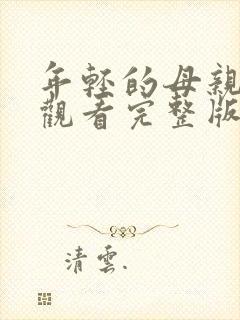 年輕的母親
觀看完整版
清雲.